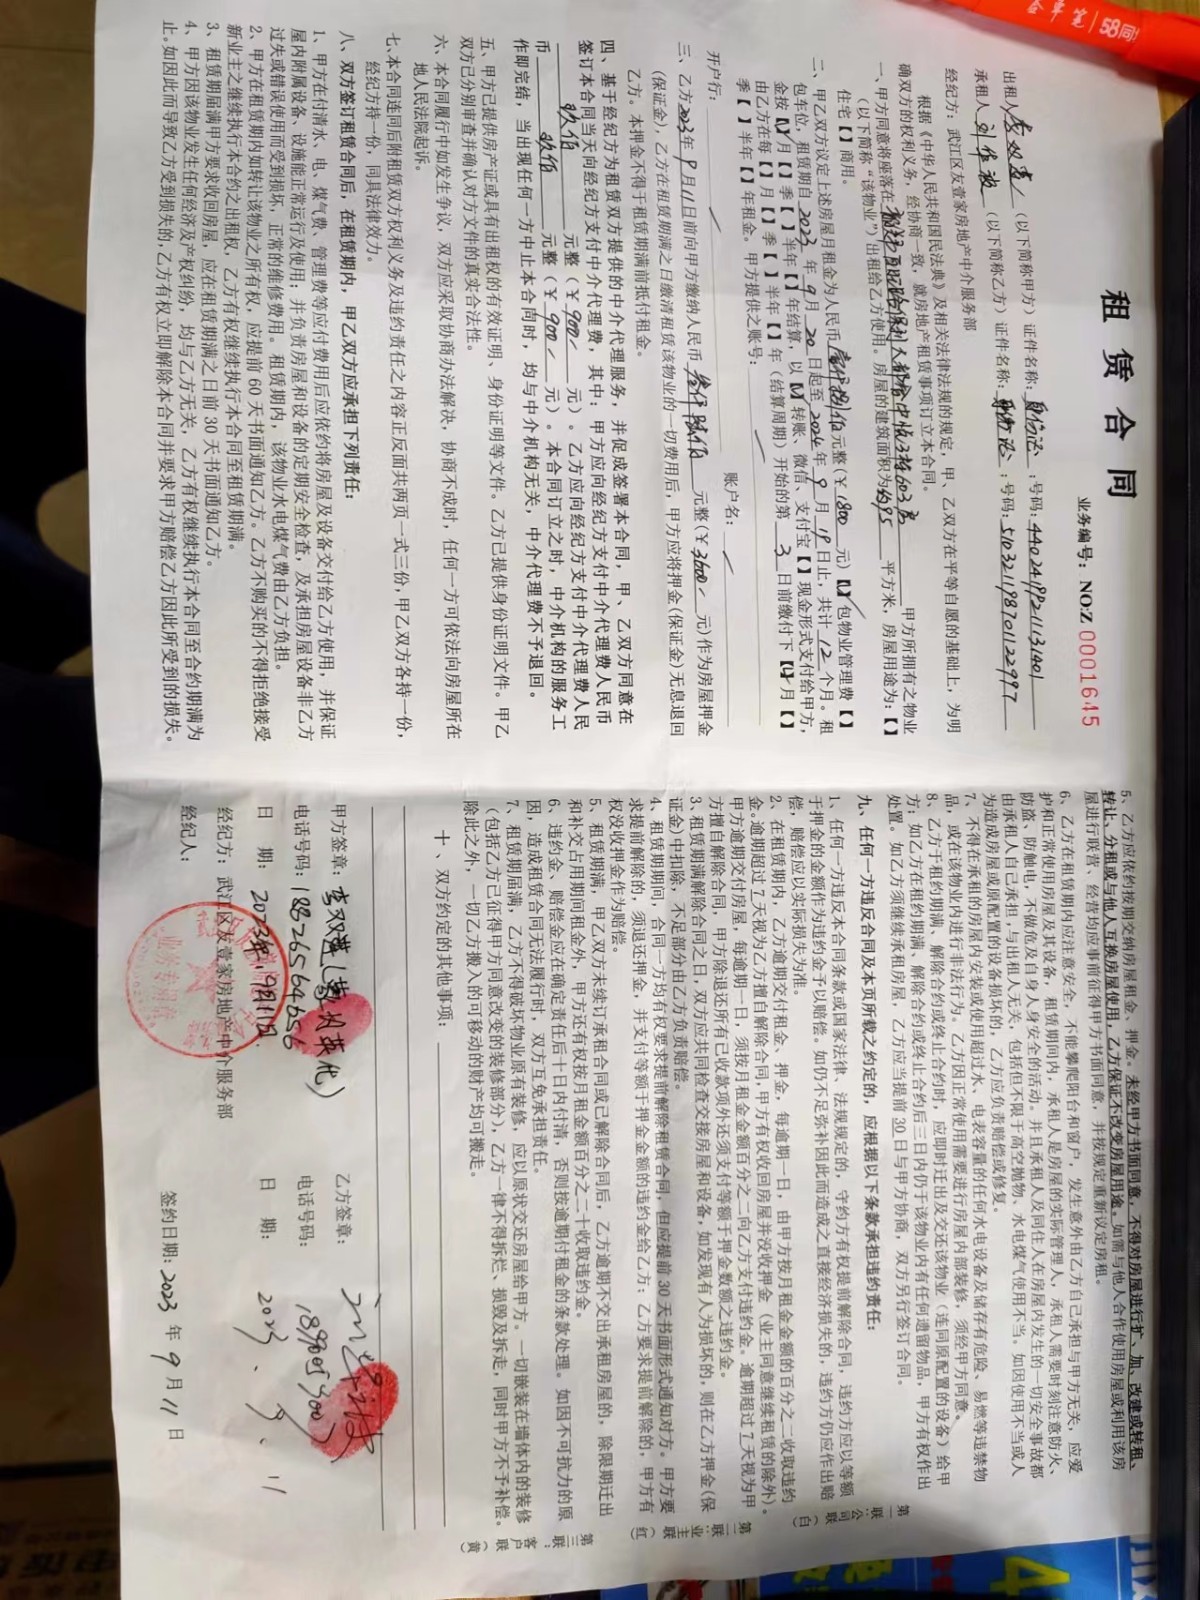 租赁合同
业务编号：NO:Z 0001645
出租人 （以下简称甲方）证件名称：身份证 号码：
承租人 （以下简称乙方）证件名称：身份证 号码：
经纪方：武江区友壹家房地产中介服务部
根据《中华人民共和国民法典》及相关法律法规的规定，甲、乙双方在平等自愿的基础上，为明
确双方的权利义务，经协商一致，就房地产租赁事项订立本合同。
一、甲方同意将座落在 603房 甲方所拥有之物业
（以下简称“该物业”）出租给乙方使用。房屋的建筑面积为 约95 平方米，房屋用途为：【】
住宅【】商用。
二、甲乙双方议定上述房屋月租金为人民币 元整（￥1800 元）【√】包物业管理费【】
包车位，租赁期自 2023 年 9 月 20 日起至 2024 年 9 月 19 日止，共计 12 个月。租
金按【√】月【】季【】半年【】年结算，以【√】转账、微信、支付宝【】现金形式支付给甲方，
由乙方在每【】月【】季【】半年【】年（结算周期）开始的第 3 日前缴付下【√】月【】
季【】半年【】年租金。甲方提供之账号：
开户行： 账户名：
三、乙方2023年9月11日前向甲方缴纳人民币 叁仟陆佰 元整（￥3600 元）作为房屋押金
（保证金），乙方在租赁期满之日缴清租赁该物业的一切费用后，甲方应将押金（保证金）无息退回
乙方。本押金不得于租赁期满前抵付租金。
四、基于经纪方为租赁双方提供的中介代理服务，并促成签署本合同，甲、乙双方同意在
签订本合同当天向经纪方支付中介代理费，其中：甲方应向经纪方支付中介代理费人民币
玖佰 元整（￥900 元）。乙方应向经纪方支付中介代理费人民
币 玖佰 元整（￥900 元）。本合同订立之时，中介机构的服务工
作即完结，当出现任何一方中止本合同时，均与中介机构无关，中介代理费不予退回。
五、甲方已提供房产证或具有出租权的有效证明、身份证明等文件。乙方已提供身份证明文件。甲乙
双方已分别审查并确认对方文件的真实合法性。
六、本合同履行中如发生争议，双方应采取协商办法解决，协商不成时，任何一方可依法向房屋所在
地人民法院起诉。
七、本合同连同后附租赁双方权利义务及违约责任之内容正反面共两页一式三份，甲乙双方各持一份，
经纪方持一份，同具法律效力。
八、双方签订租赁合同后，在租赁期内，甲乙双方应承担下列责任：
1、甲方在付清水、电、煤气费、管理费等应付费用后应依约将房屋及设备交付给乙方使用，并保证
屋内附属设备、设施能正常运行及使用，并负责房屋和设备的定期安全检查，及承担房屋设备非乙方
过失或错误使用而受到损坏，正常的维修费用。租赁期内，该物业水电煤气费由乙方负担。
2、甲方在租赁期内如转让该物业之所有权，应提前 60 天书面通知乙方。乙方不购买的不得拒绝接受
新业主之继续执行本合约之出租权，乙方有权继续执行本合同至租赁期满。
3、租赁期届满甲方要求收回房屋，应在租赁期满之日前 30 天书面通知乙方。
4、甲方因该物业发生任何经济及产权纠纷，均与乙方无关，乙方有权继续执行本合同至合约期满为
止。如因此而导致乙方受到损失的，乙方有权立即解除本合同并要求甲方赔偿乙方因此所受到的损失。
5、乙方应依约按期交纳房屋租金、押金。未经甲方书面同意，不得对房屋进行扩、加、改建或转租、
转让、分租或与他人互换房屋使用，乙方保证不改变房屋用途。如需与他人合作使用房屋或利用该房
屋进行联营、经营均应事前征得甲方书面同意，并按规定重新议定房租。
6、乙方在租赁期内应注意安全，不能攀爬阳台和窗户，发生意外由乙方自己承担与甲方无关，应爱
护和正常使用房屋及其设备，租赁期间内，承租人是房屋的实际管理人，承租人需要时刻注意防火、
防盗、防触电，不做危及自身人身安全的活动。并且承租人及同住人在房屋内发生的一切安全事故都
由承租人自己承担，与出租人无关，包括但不限于高空抛物、水电煤气使用不当。如因使用不当或人
为造成房屋或原配置的设备损坏的，乙方应负责赔偿或修复。
7、不得在承租的房屋内安装或使用超过水、电表容量的任何水电设备及储存有危险、易燃等违禁物
品，或在该物业内进行非法行为。乙方因正常使用需要进行房屋内部装修，须经甲方同意。
8、乙方于租约期满，解除合约或终止合约时，应即时迁出及交还该物业（连同原配置的设备）给甲
方；如乙方在租约期满、解除合约或终止合约后三日内仍于该物业内有任何遗留物品，甲方有权作出
处置。如乙方须继续承租房屋，乙方应当提前 30 日与甲方协商，双方另行签订合同。
九、任何一方违反合同及本页所载之约定的，应根据以下条款承担违约责任：
1、任何一方违反本合同条款或国家法律、法规规定的，守约方有权提前解除合同，违约方应以等额
于押金的金额作为违约金予以赔偿。如仍不足弥补因此而造成之直接经济损失的，违约方仍应作出赔
偿，赔偿应以实际损失为准。
2、在租赁期内，乙方逾期交付租金、押金，每逾期一日，由甲方按月租金金额的百分之二收取违约
金。逾期超过 7 天视为乙方擅自解除合同，甲方有权收回房屋并没收押金（业主同意继续租赁的除外）。
甲方逾期交付房屋，每逾期一日，须按月租金金额百分之二向乙方支付违约金。逾期超过 7 天视为甲
方擅自解除合同，甲方除退还所有已收款项外还须支付等额于押金数额之违约金。
3、租赁期满解除合同之日，双方应共同检查交接房屋和设备，如发现有人为损坏的，则在乙方押金（保
证金）中扣除，不足部分由乙方负责赔偿。
4、租赁期期间，合同一方均有权要求提前解除租赁合同，但应提前 30 天书面形式通知对方。甲方要
求提前解除的，须退还押金，并支付等额于押金金额的违约金给乙方；乙方要求提前解除的，甲方有
权没收押金作为赔偿。
5、租赁期满，甲乙双方未续订承租合同或已解除合同后，乙方逾期不交出承租房屋的，除限期迁出
和补交占用期间租金外，甲方还有权按月租金额百分之二十收取违约金。
6、违约金、赔偿金应在确定责任后十日内付清，否则按逾期付租金的条款处理。如因不可抗力的原
因，造成租赁合同无法履行时，双方互免承担责任。
7、租赁期届满，乙方不得破坏物业原有装修，应以原状交还房屋给甲方。一切嵌装在墙体内的装修
（包括乙方已征得甲方同意改变的装修部分），乙方一律不得拆拦、损毁及拆走，同时甲方不予补偿。
除此之外，一切乙方搬入的可移动的财产均可搬走。
十、双方约定的其他事项：
甲方签章： 乙方签章：
电话号码：18826564656 电话号码：
日 期：2023年9月11日 日 期：2023、9、11
经纪方：武江区友壹家房地产中介服务部
经纪人： 签约日期：2023 年 9 月 11 日
第一联：公司联（白）
第二联：业主联（红）
第三联：客户联（黄）
业务专用章
58同